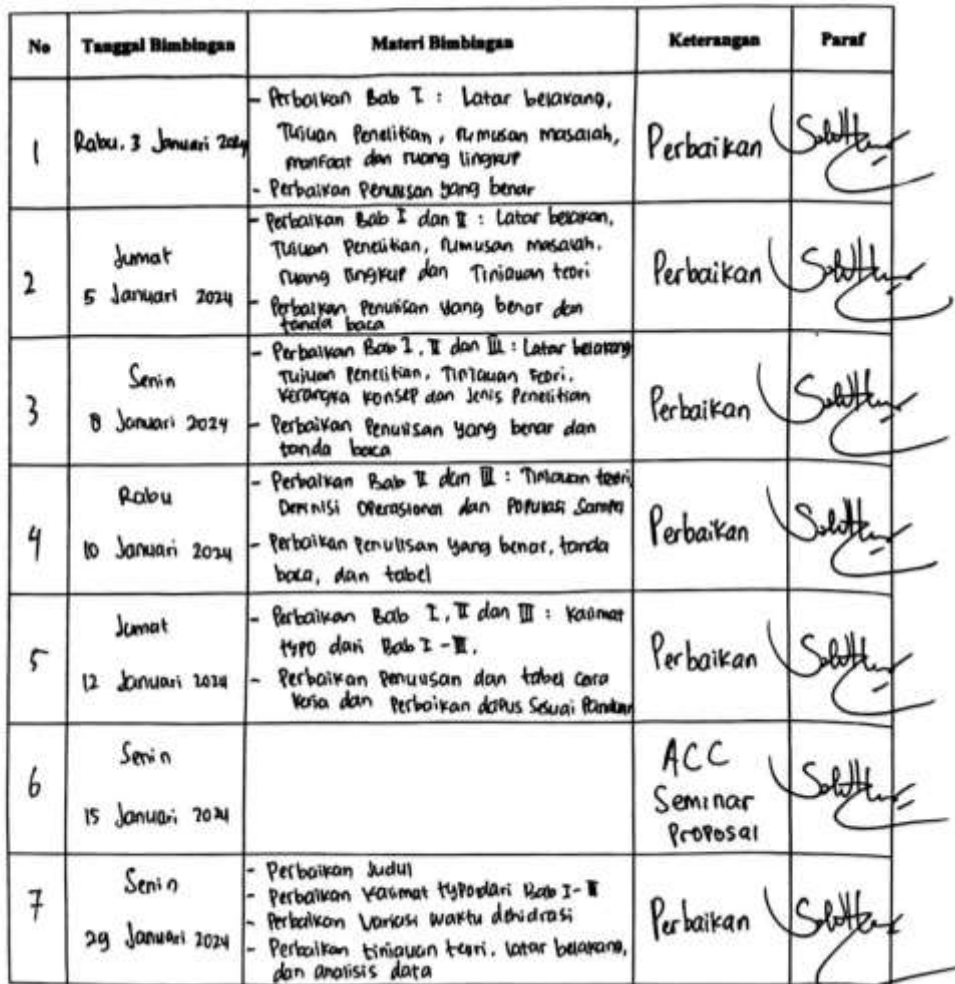 No Tanggal Bimbingan Materi Bimbingan Keterangan Paraf
1
Rabu, 3 Januari 2024
- Perbaikan Bab I : Latar belakang,
Tujuan Penelitian, rumusan masalah,
manfaat dan ruang lingkup
- Perbaikan Penulisan yang benar
Perbaikan
2
Jumat
5 Januari 2024
- Perbaikan Bab I dan II : Latar belakan,
Tujuan Penelitian, rumusan masalah,
ruang lingkup dan Tinjauan teori
- Perbaikan Penulisan yang benar dan
tanda baca
Perbaikan
3
Senin
8 Januari 2024
- Perbaikan Bab I, II dan III : Latar belakang
Tujuan Penelitian, Tinjauan teori,
kerangka konsep dan Jenis Penelitian
- Perbaikan Penulisan yang benar dan
tanda baca
Perbaikan
4
Rabu
10 Januari 2024
- Perbaikan Bab II dan III : Tinjauan teori,
Definisi Operasional dan Populasi Sampel
- Perbaikan Penulisan yang benar, tanda
baca, dan tabel
Perbaikan
5
Jumat
12 Januari 2024
- Perbaikan Bab I, II dan III : Kalimat
typo dari Bab I - III,
- Perbaikan Penulisan dan tabel cara
kerja dan Perbaikan dapus Sesuai Panduan
Perbaikan
6
Senin
15 Januari 2024
ACC
Seminar
Proposal
7
Senin
29 Januari 2024
- Perbaikan Judul
- Perbaikan Kalimat typo dari Bab I - III
- Perbaikan Variasi waktu dehidrasi
- Perbaikan tinjauan teori, latar belakang,
dan analisis data
Perbaikan